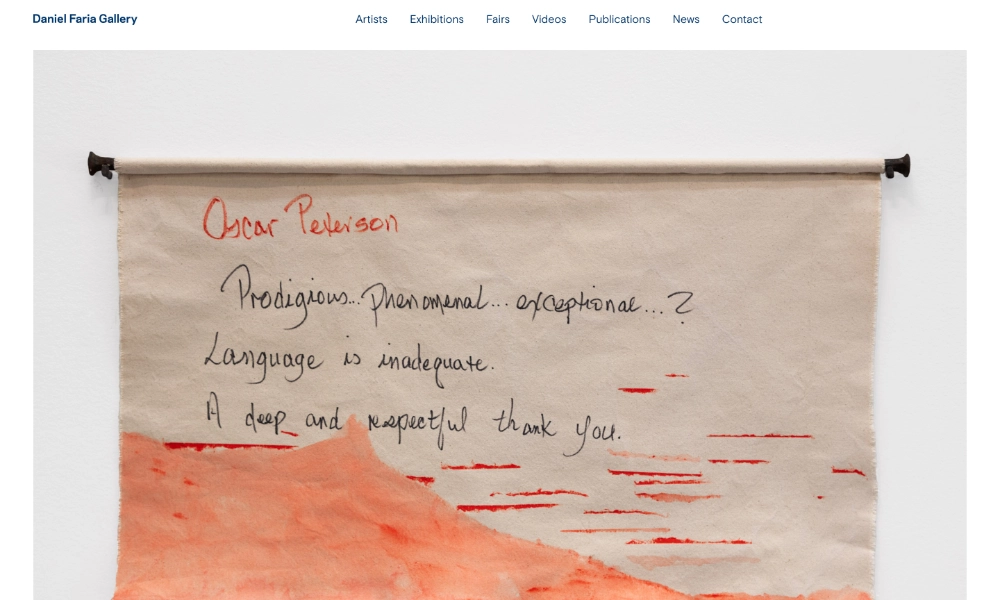 Daniel Faria Gallery
Artists Exhibitions Fairs Videos Publications News Contact
Oscar Peterson
Prodigious... phenomenal... exceptional...?
Language is inadequate.
A deep and respectful thank you.